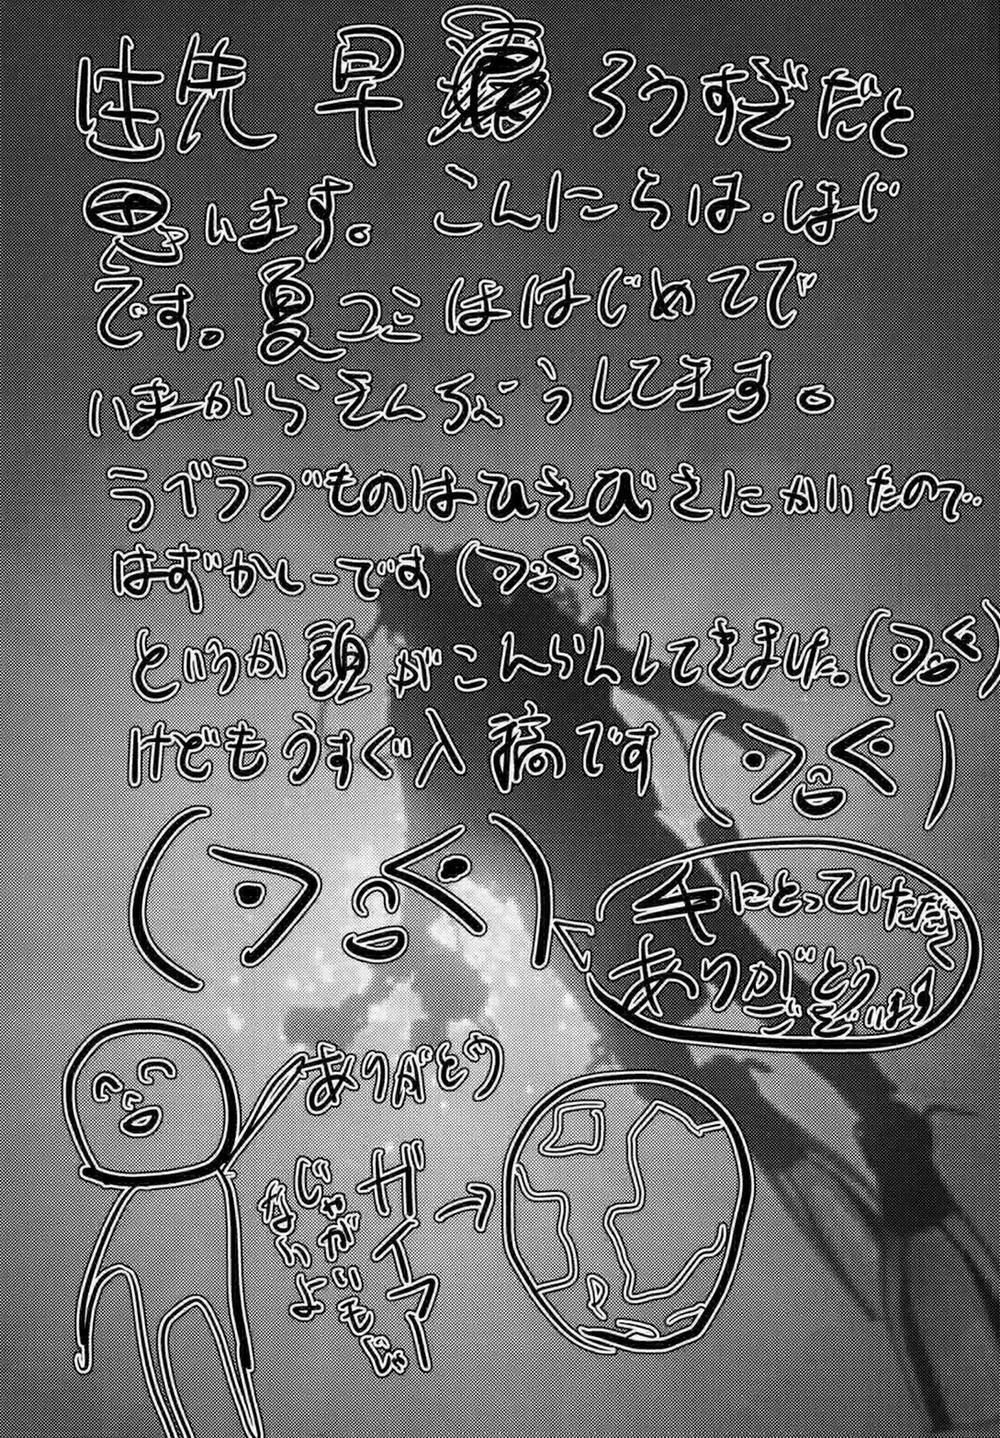 早 ろうすぎだと
思います。 こんにちは・ほじ
です。夏コミははじめてで
いまからきんちょうしてます。
ラブラブものはひさびさにかいたので‥
はずかしーです
というか頭がこんらんしてきました。
けどもうすぐ入稿です
手にとっていただき
ありがとう
ございます
ありがとう
ガイアー→
じゃがいもじゃ
ないよ